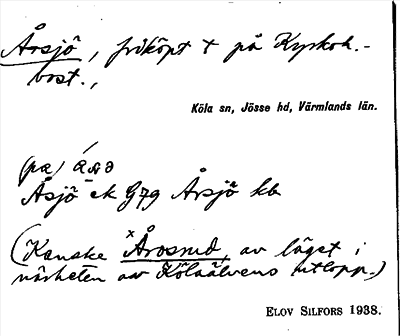 Årsjö, friköpt t på Kyrkoh.-
bost.,
Köla sn, Jösse hd, Värmlands län.
(pa)
Åsjö ek G79 Årsjö kb
(Kanske ˣÅrosrud, av läget i
närheten av Kölaälvens utlopp.)
ELOV SILFORS 1938.